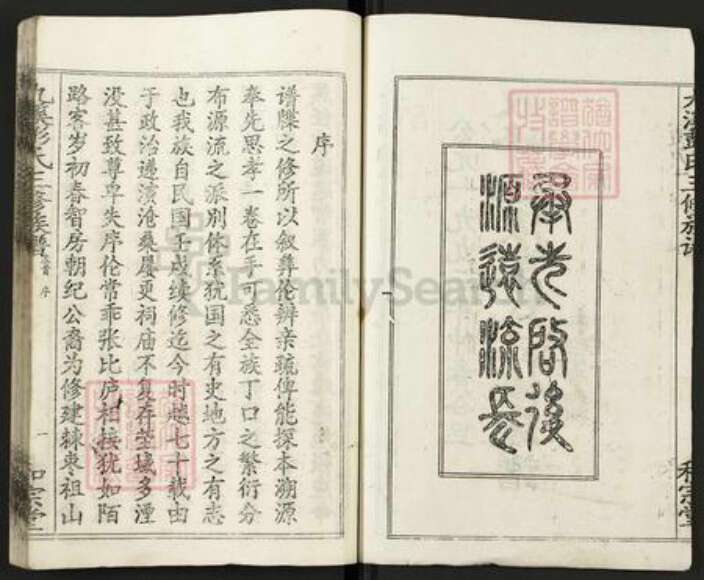 承先啟後
源遠流長
和宗堂
序
谱牒之修所以叙彝伦辨亲疏俾能探本溯源
奉先思孝一卷在手可悉全族丁口之繁衍分
布源流之派别体系犹国之有史地方之有志
也我族自民国壬戌续修迄今时越七十载由
于政治递演沧桑屡更祠庙不复存茔墟多湮
没甚致尊卑失序伦常乖张比庐相接犹如陌
路客岁初春智房朝纪公裔为修建棘枣祖山
九溪彭氏三修族谱
序
一
和宗堂
FamilySearch